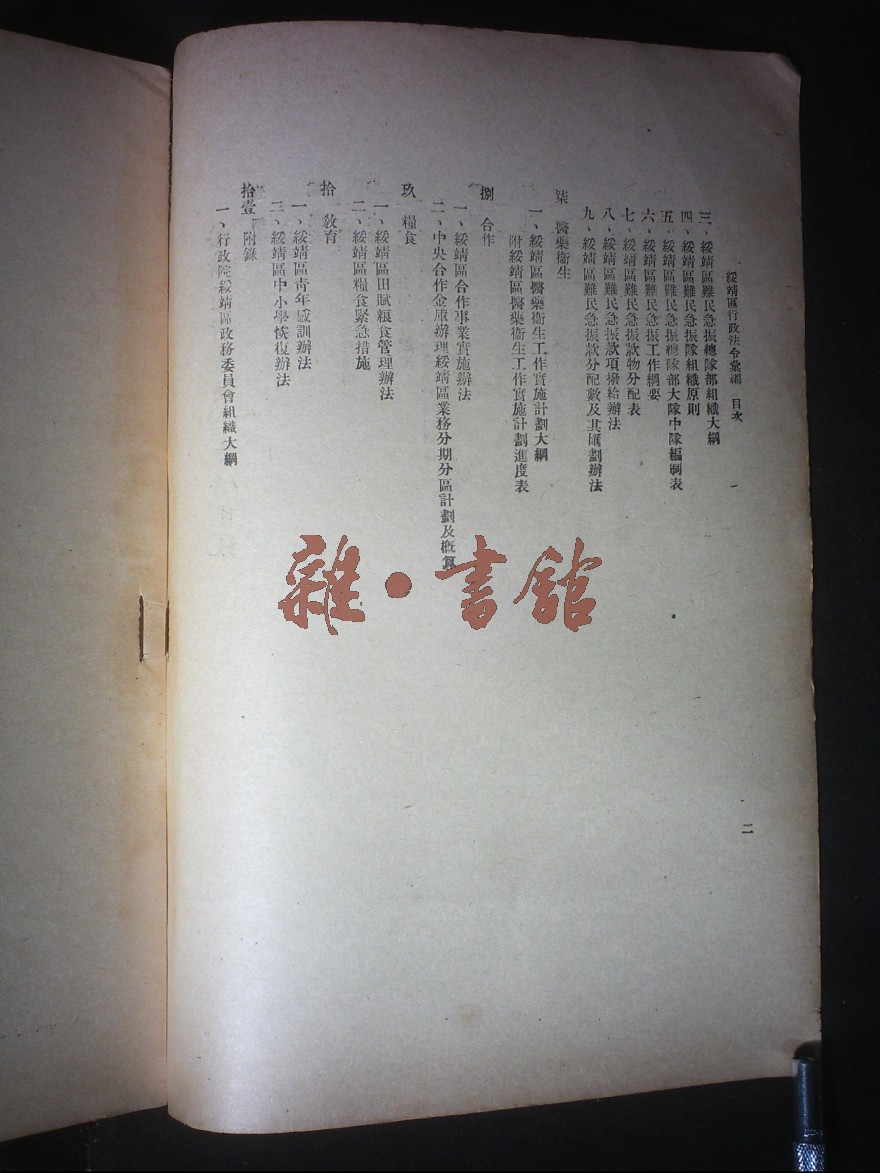 綏靖區行政法令彙編 目次 一
二
三、綏靖區難民急振總隊部組織大綱
四、綏靖區難民急振隊組織原則
五、綏靖區難民急振總隊部大隊中隊編制表
六、綏靖區難民急振工作綱要
七、綏靖區難民急振款物分配表
八、綏靖區難民急振款項撥給辦法
九、綏靖區難民急振款分配數及其匯劃辦法
柒 醫藥衞生
一、綏靖區醫藥衞生工作實施計劃大綱
附綏靖區醫藥衞生工作實施計劃進度表
捌 合作
一、綏靖區合作事業實施辦法
二、中央合作金庫辦理綏靖區業務分期分區計劃及概算
玖 糧食
一、綏靖區田賦粮食管理辦法
二、綏靖區糧食緊急措施
拾 敎育
一、綏靖區靑年感訓辦法
二、綏靖區中小學恢復辦法
拾壹 附錄
一、行政院綏靖區政務委員會組織大綱
雜·書館